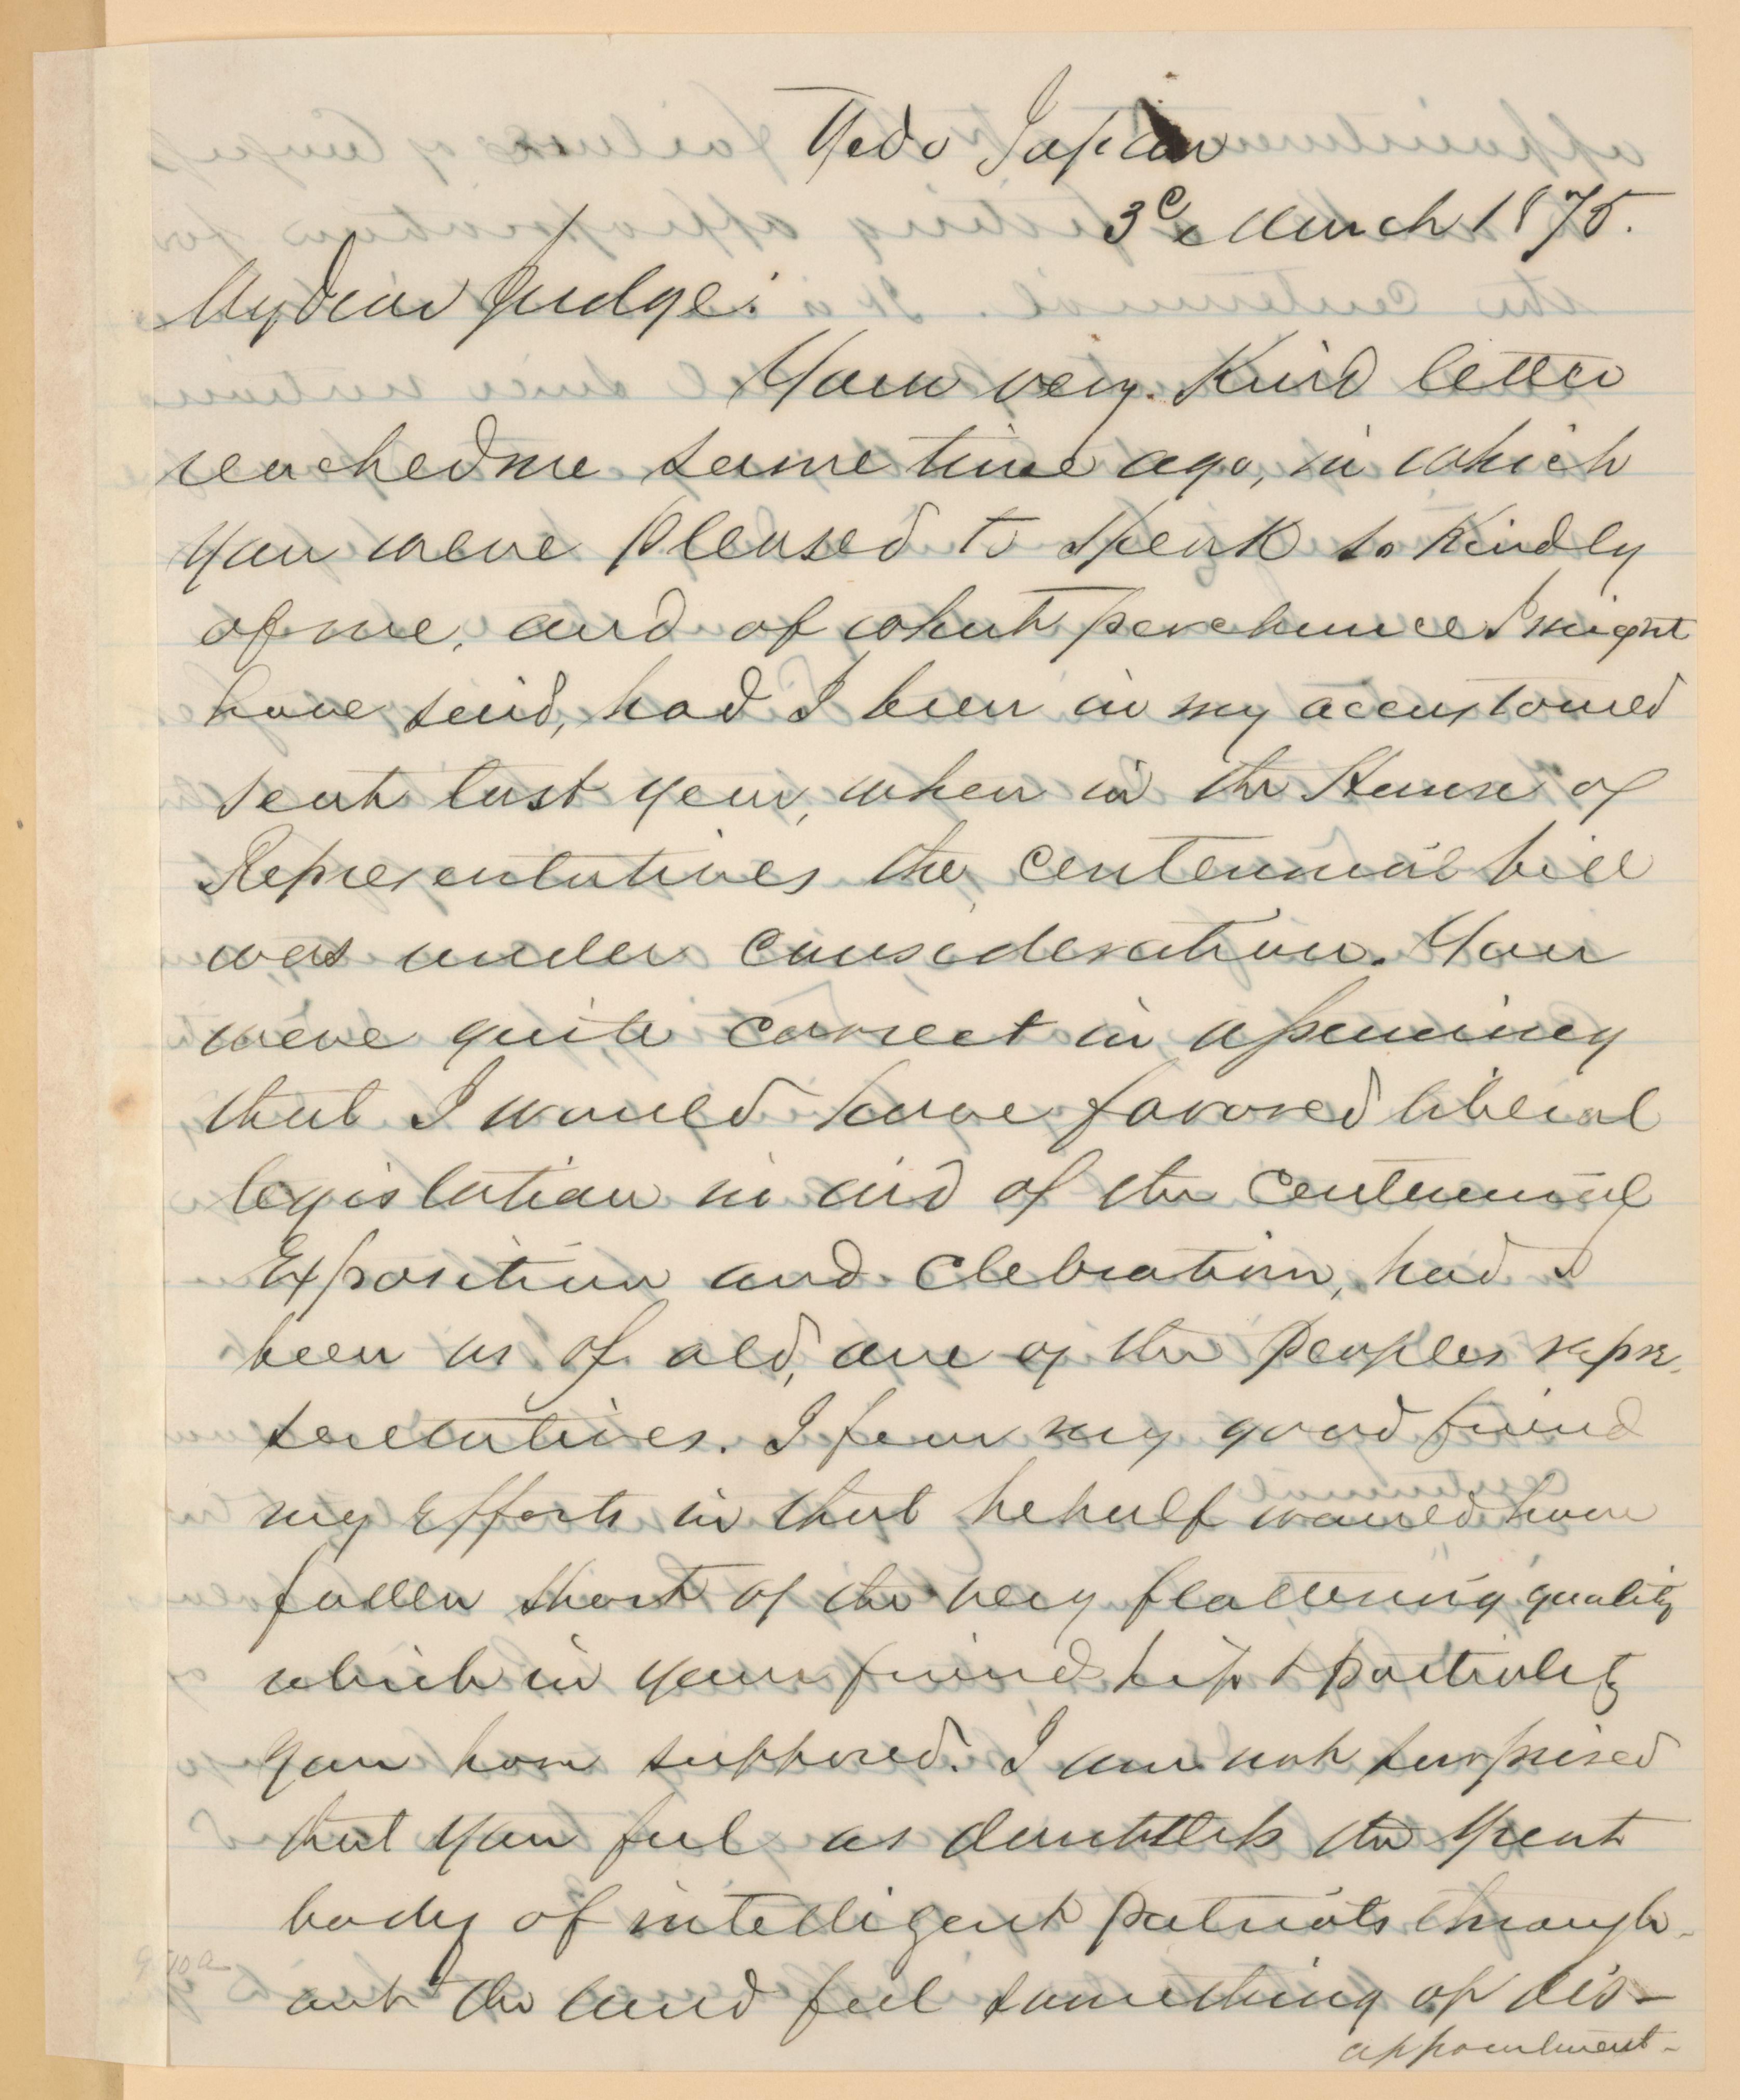 Yedo Japan
3d March 1875.
My Dear Judge:
Your very kind letter
reached me some time ago, in which
you were pleased to speak so kindly
of me, and of what perchance I might
have said, had I been in my accustomed
seat last year, when in the House of
Representatives the centennial bill
was under consideration. You
were quite correct in assuming
that I would have favored liberal
legislation in aid of the Centennial
Exposition and Clebration, had I
been as of old, one of the peoples repre-
sentatives. I fear my good friend
my efforts in that behalf would have
fallen short of the very flattering quality
which in your friendship & partiality
you have supposed. I am not surprised
that you feel as doubtless the great
body of intelligent patriots through-
out the land feel something of dis-
appointment-